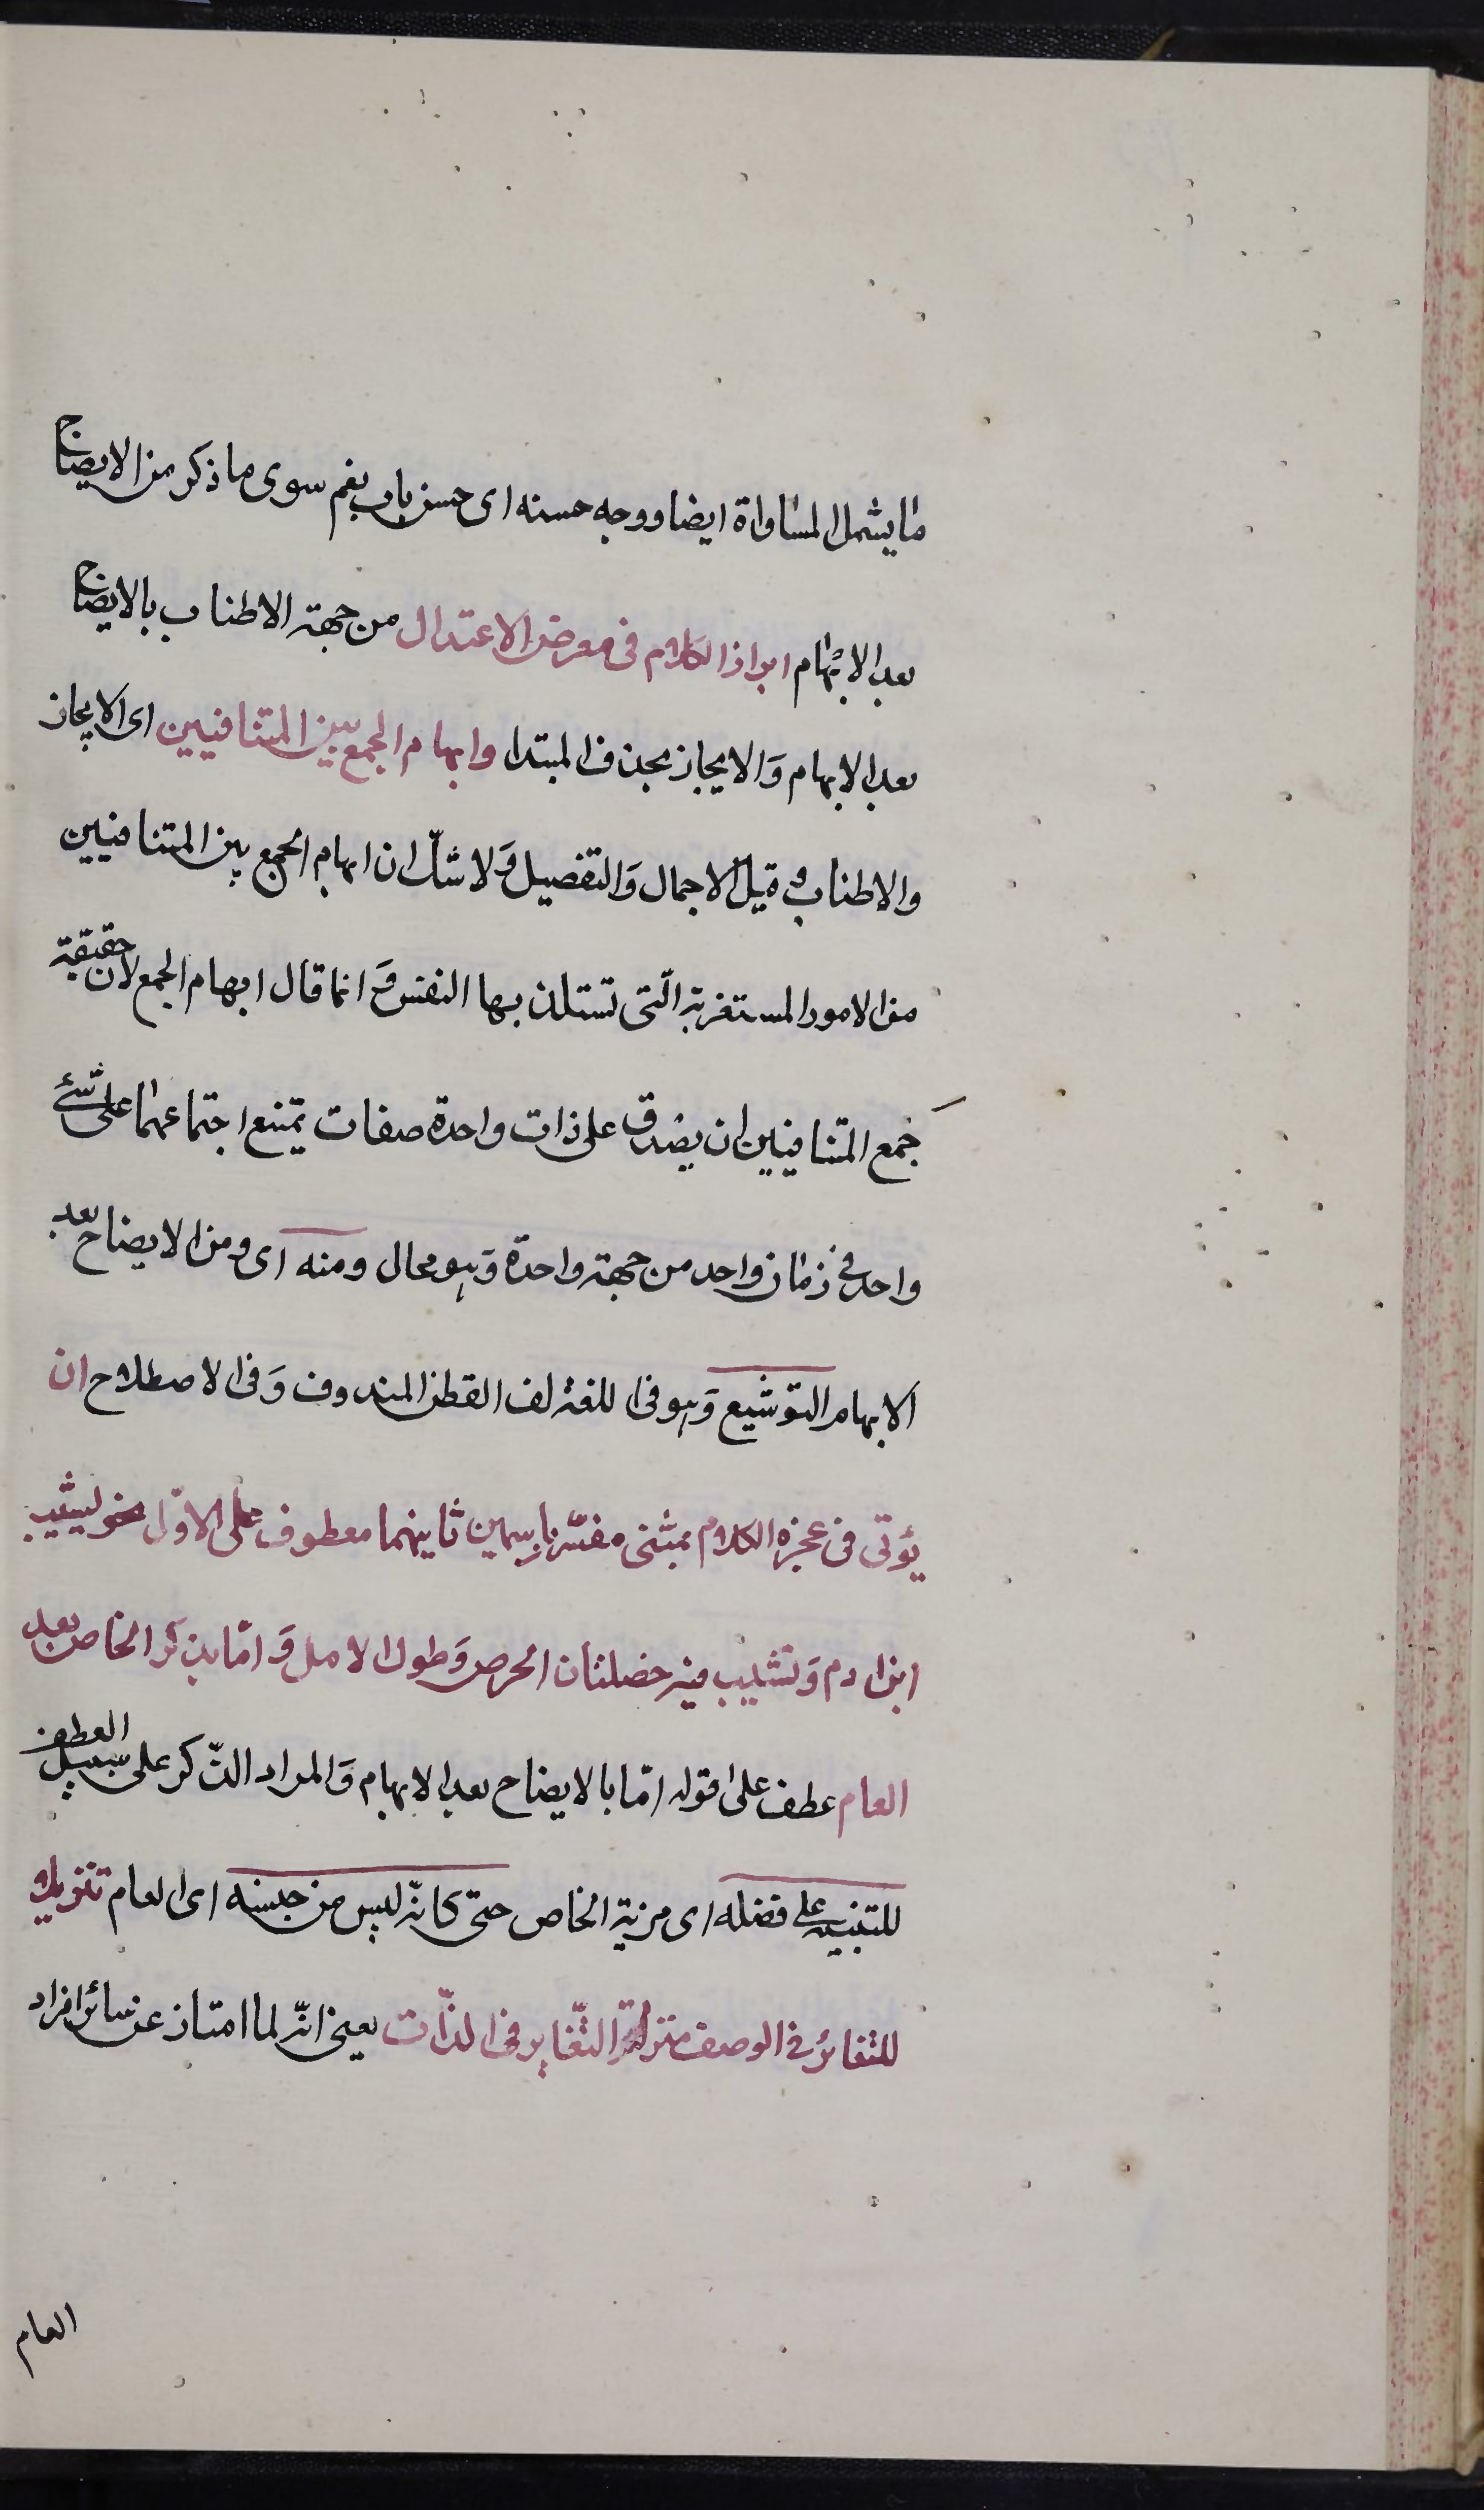 ما يشمل المساواة ايضا ووجه حسنه اى حسن باب نعم سوى ما ذكر من الايضاح
بعد الابهام ابراز الكلام فى معرض الاعتدال من جهة الاطناب بالايضاح
بعد الابهام وَالايجاز بحذف المبتدا وايهام الجمع بين المتنافيين اى الايجاز
والاطناب وقيل الاجمال وَالتفصيل وَلا شكّ ان ايهام الجمع بين المتنافيين
من الامور المستغربة الّتى تستلذ بها النفس وَانما قال ايهام الجمع لان حقيقة
جمع المتنافيين ان يصدق على ذات واحدة صفات يمتنع اجتماعهما على شئ
واحد فى زمان واحد من جهة واحدة وَهو محال ومنه اى ومن الايضاح بعد
الابهام التوشيع وَهو فى اللغة لف القطن المندوف وَفى الاصطلاح ان
يؤتى فى عجزه الكلام بمثنى مفسّر باسمين ثانيهما معطوف على الاوّل نحو يشيب
ابن ادم وَتشيب فيه خصلتان الحرص وَطول الامل وَامّا بذكر الخاص بعد
العام عطف على قوله امّا بالايضاح بعد الابهام وَالمراد الذّكر على سبيل العطف
للتنبيه على فضله اى مزية الخاص حتى كانّه ليس من جنسه اى العام تنزيلا
للتغائر فى الوصف منزلة التّغاير فى الذّات يعنى انّه لما امتاز عن سائر افراد
العام